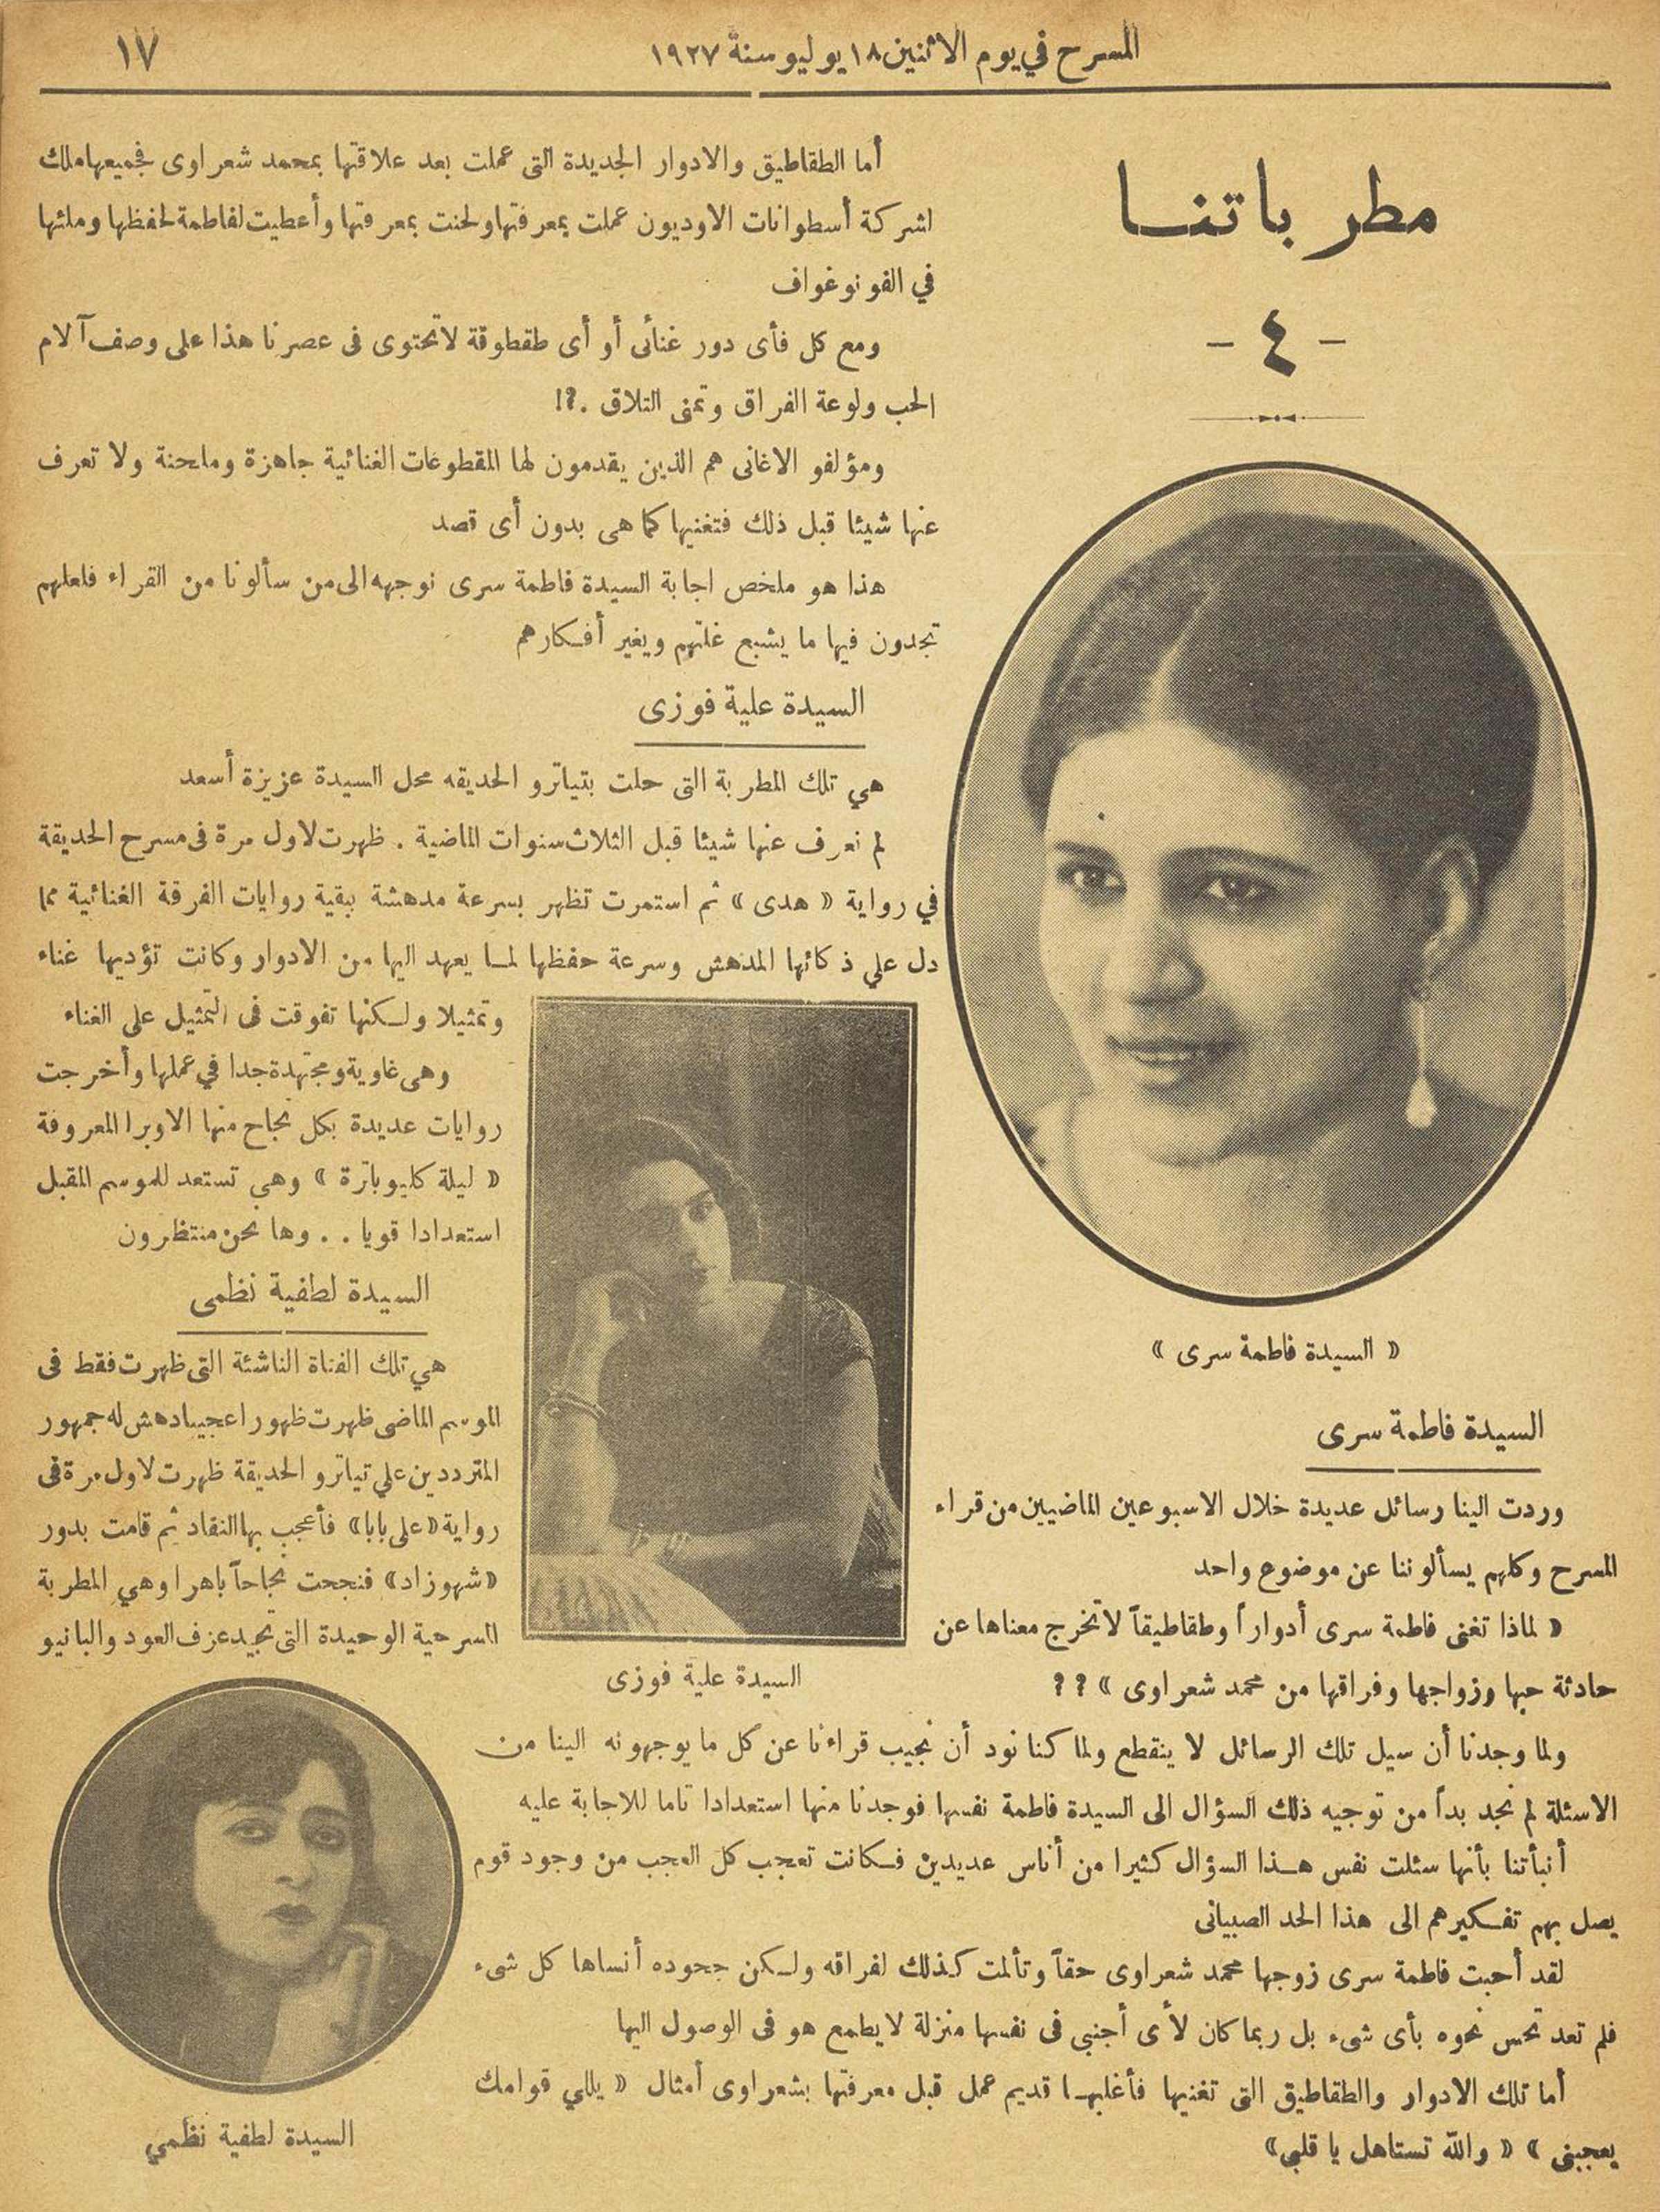 المسرح في يوم الاثنين ١٨ يوليو سنة ١٩٢٧
١٧
مطرباتنا
- ٤ -
« السيدة فاطمة سرى »
السيدة فاطمة سرى
وردت الينا رسائل عديدة خلال الاسبوعين الماضيين من قراء
المسرح وكلهم يسألوننا عن موضوع واحد
« لماذا تغنى فاطمة سرى أدواراً وطقاطيقاً لا تخرج معناها عن
حادثة حبها وزواجها وفراقها من محمد شعراوى » ؟ ؟
ولما وجدنا أن سيل تلك الرسائل لا ينقطع ولما كنا نود أن نجيب قراءنا عن كل ما يوجهونه الينا من
الاسئلة لم نجد بداً من توجيه ذلك السؤال الى السيدة فاطمة نفسها فوجدنا منها استعدادا تاما للاجابة عليه
أنبأتنا بأنها سئلت نفس هذا السؤال كثيرا من أناس عديدين فكانت تعجب كل العجب من وجود قوم
يصل بهم تفكيرهم الى هذا الحد الصبيانى
لقد أحبت فاطمة سرى زوجها محمد شعراوى حقاً وتألمت كذلك لفراقه ولكن جحوده أنساها كل شىء
فلم تعد تحس نحوه بأى شىء بل ربما كان لأى أجنبى فى نفسها منزلة لا يطمع هو فى الوصول اليها
أما تلك الادوار والطقاطيق التى تغنيها فأغلبها قديم عمل قبل معرفتها بشعراوى أمثال « يللي قوامك
يعجبنى » « والله تستاهل يا قلبي»
أما الطقاطيق والادوار الجديدة التى عملت بعد علاقتها بمحمد شعراوى فجميعها ملك
اشركة أسطوانات الاوديون عملت بمعرفتها ولحنت بمعرفتها وأعطيت لفاطمة لحفظها وملئها
في الفونوغواف
ومع كل فأى دور غنائى أو أى طقطوقة لا تحتوى فى عصرنا هذا على وصف آلام
الحب ولوعة الفراق وتمنى التلاق .؟!
ومؤلفو الاغانى هم الذين يقدمون لها المقطوعات الغنائية جاهزة وملحنة ولا تعرف
عنها شيئا قبل ذلك فتغنيها كما هى بدون أى قصد
هذا هو ملخص اجابة السيدة فاطمة سرى نوجهه الى من سألونا من القراء فلعلهم
تجدون فيها ما يشبع غلتهم ويغير أفكارهم
السيدة علية فوزى
هي تلك المطربة التى حلت بتياترو الحديقه محل السيدة عزيزة أسعد
لم نعرف عنها شيئا قبل الثلاث سنوات الماضية . ظهرت لاول مرة فى مسرح الحديقة
في رواية « هدى » ثم استمرت تظهر بسرعة مدهشة ببقية روايات الفرقة الغنائية مما
دل علي ذكائها المدهش وسرعة حفظها لما يعهد اليها من الادوار وكانت تؤديها غناء
وتمثيلا ولكنها تفوقت فى التمثيل على الغناء
وهى غاوية ومجتهدة جدا في عملها وأخرجت
روايات عديدة بكل نجاح منها الاوبرا المعروفة
« ليلة كليوباترة » وهي تستعد للموسم المقبل
استعدادا قويا . . وها نحن منتظرون
السيدة علية فوزى
السيدة لطفية نظمى
هي تلك الفتاة الناشئة التى ظهرت فقط فى
الموسم الماضى ظهرت ظهورا عجيبا دهش له جمهور
المترددين علي تياترو الحديقة ظهرت لاول مرة فى
رواية «على بابا» فأعجب بها النقاد ثم قامت بدور
«شهوزاد» فنجحت نجاحاً باهرا وهي المطربة
المسرحية الوحيدة التى تجيد عزف العود والبانيو
السيدة لطفية نظمي